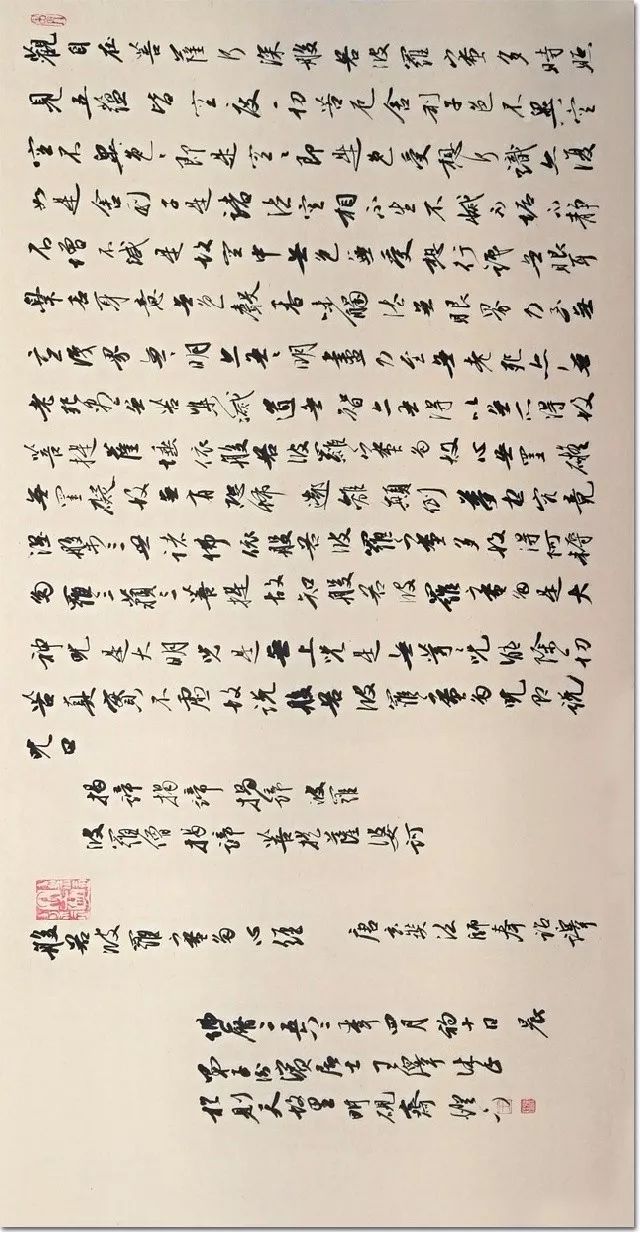 觀自在菩薩行深般若波羅蜜多時照
見五蘊皆空度一切苦厄舍利子色不異空
空不異色、即是空、即是色受想行識亦復
如是舍利子是諸法空相不生不滅不垢不靜
不增不減是故空中無色無受想行識無眼耳
鼻舌身意無色聲香味觸法無眼界乃至無
意識界無、明亦無、明盡乃至無老死亦無
老死盡無苦集滅道無智亦無得以無所得故
菩提薩埵依般若波羅蜜多故心無罣礙
無罣礙故無有恐怖遠離顛倒夢想究竟
涅槃三世諸佛依般若波羅蜜多故得阿耨
多羅三藐三菩提故知般若波羅蜜多是大
神咒是大明咒是無上咒是無等、咒能除一切
苦真實不虛故說般若波羅蜜多咒即說
咒曰
揭諦揭諦揭諦波羅
波羅僧揭諦菩提薩婆訶
般若波羅蜜多心經 唐玄奘法師奉詔譯
佛曆二五六二年四月初十日晨
濱居士王澤
於則天故里明硯齋燈下